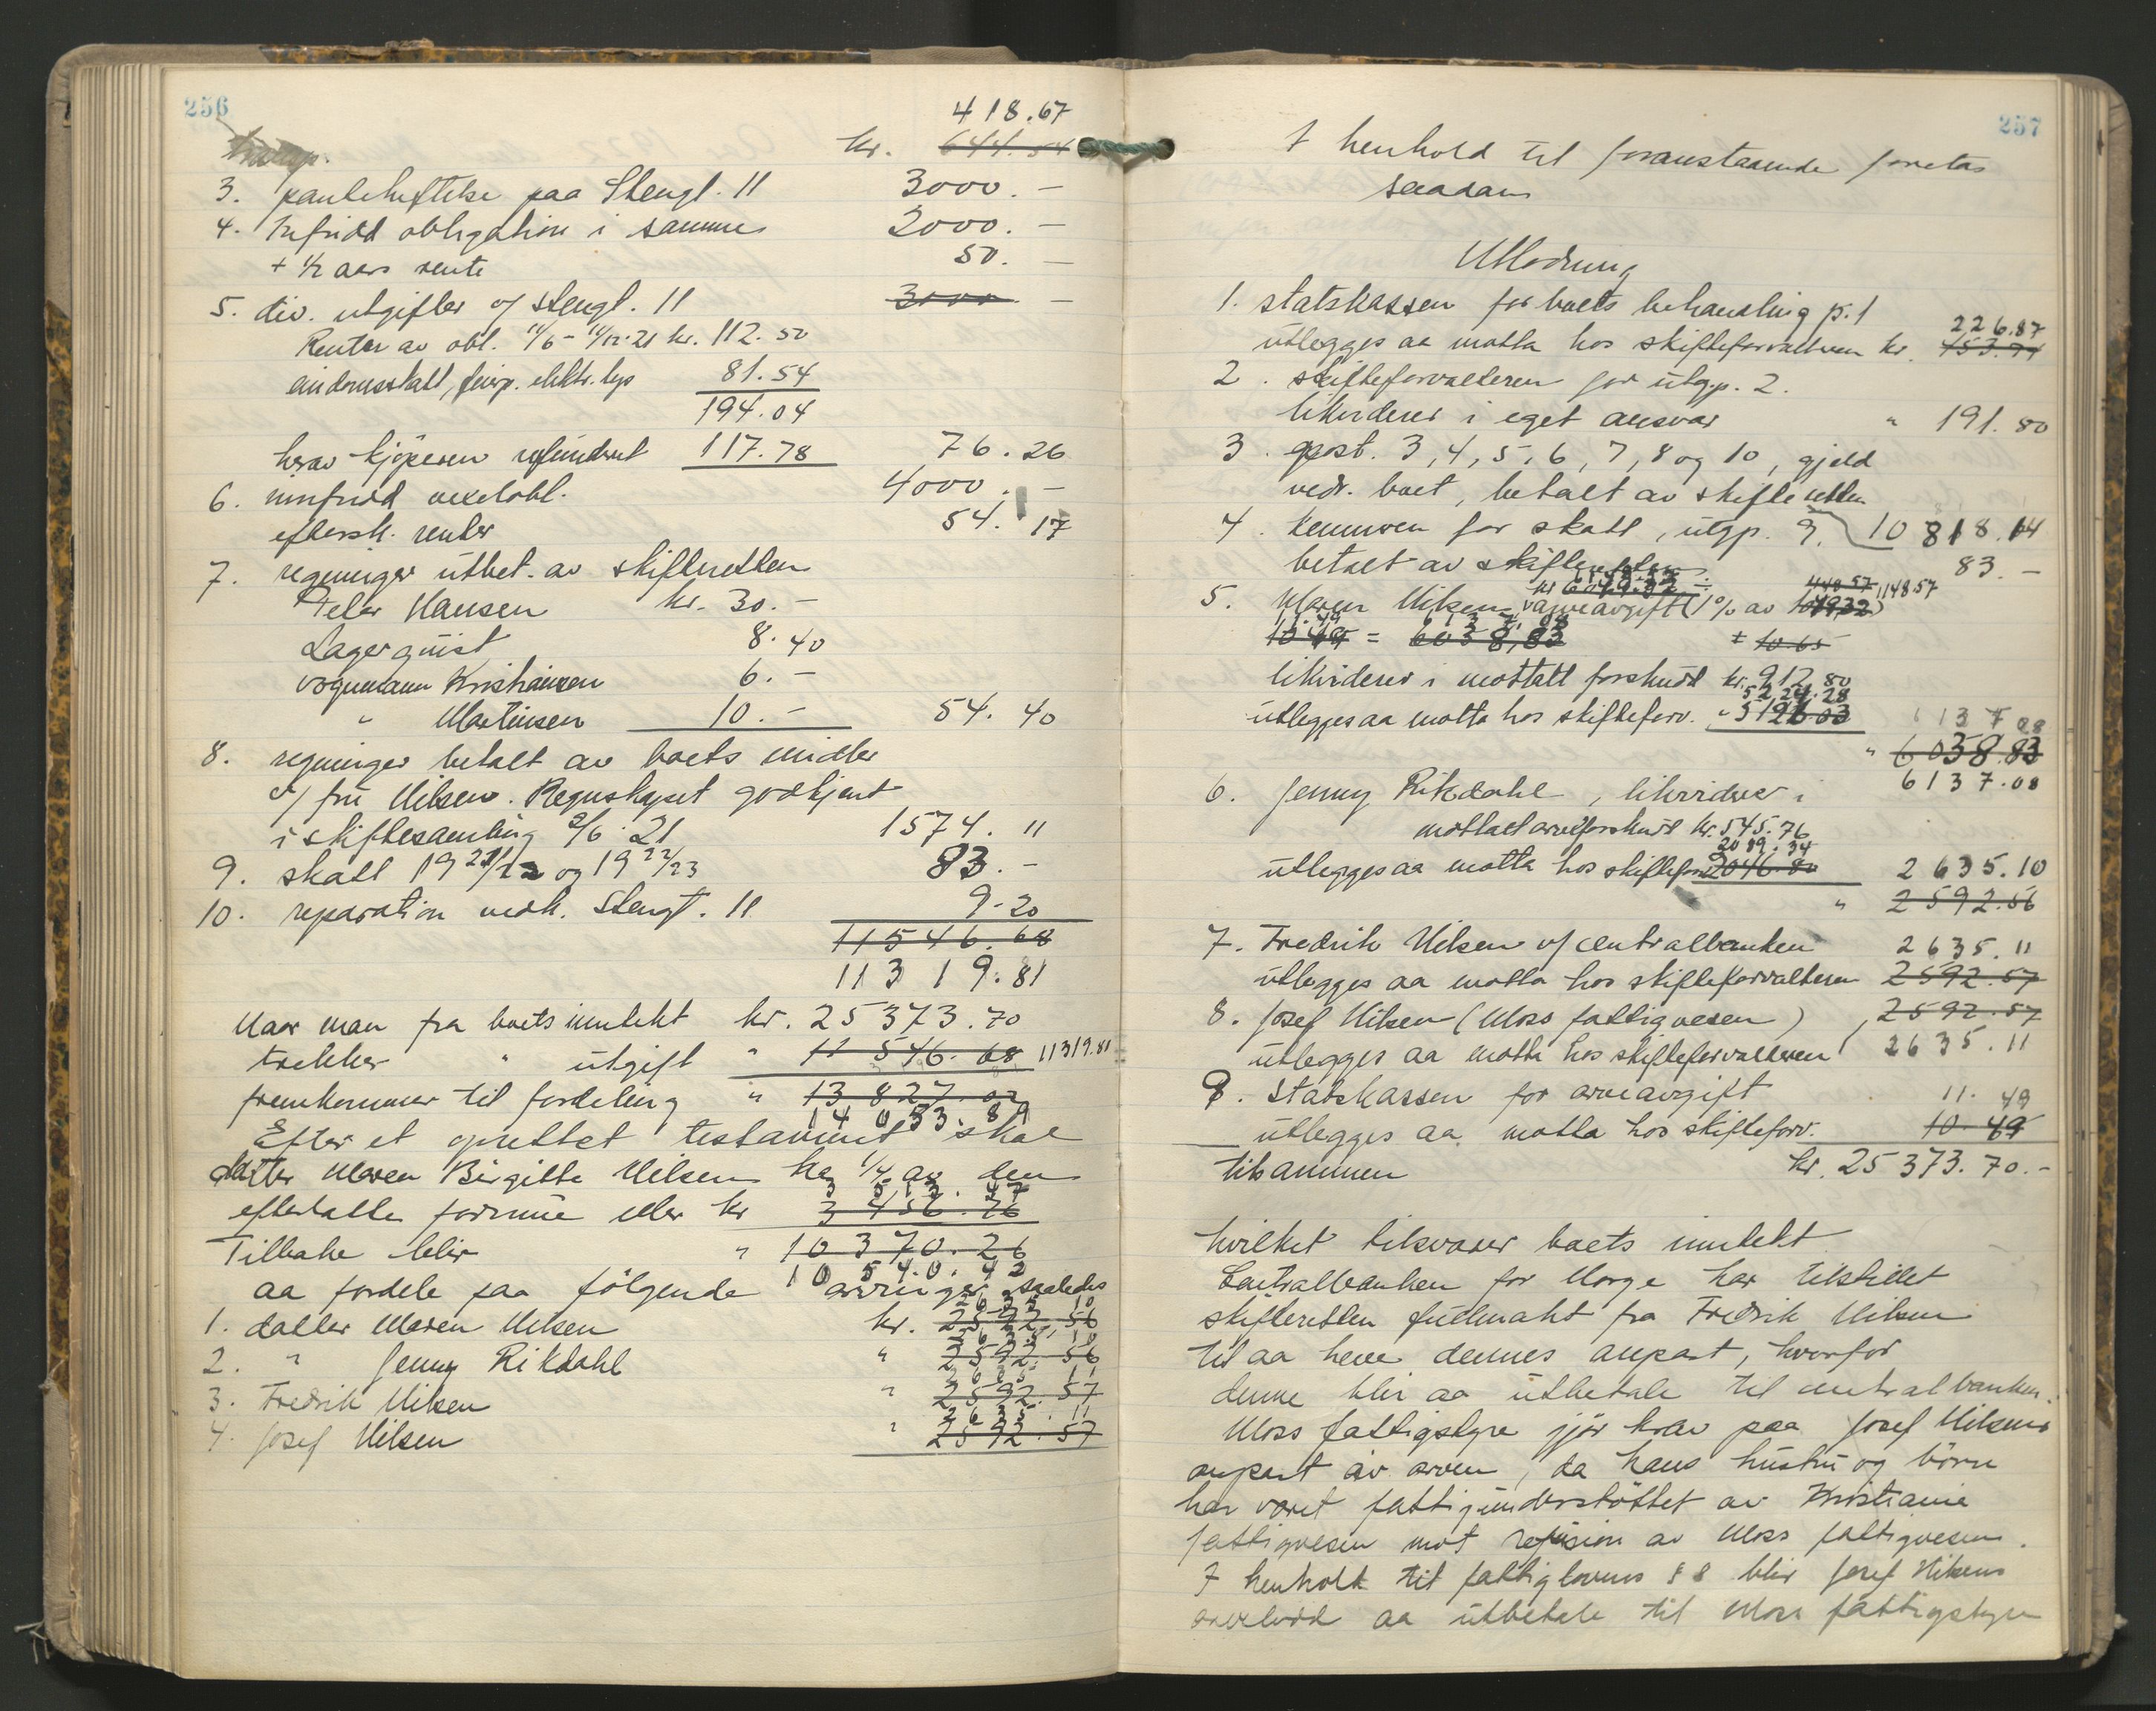 256
418.67
transp. kr. 644.54
3. panteheftelse paa Stengt. 11 3000.-
4. Infridd obligation i samme 2000.-
+ 1/2 aars rente 50.-
5. div. utgifter v/ Stengt. 11 3000.-
Renter av obl. 11/6 - 11/12-21 kr. 112.50
eiendomsskatt, feiep. elektr. lys 81.54
194.04
herav kjöperen refundert 117.78 76.26
6. innfridd vexelobl. 4000.-
eftersk. renter 54.17
7. regninger utbet. av skifteretten
Peter Hansen kr. 30.-
Lagerquist 8.40
vognmann Kristiansen 6.-
" Martinsen 10.- 54.40
8. regninger betalt av boets midler
v/ fru Nilsen. Regnskapet godkjent
i skiftesamling 2/6 21 1574.11
9. skatt 1921/22 og 1922/23 83.-
10. reparation vedk. Stengt. 11 9-20
11546.68
11319.81
Naar man fra boets inntekt kr. 25373.70
trekker " utgift " 11546.68 11319.81
fremkommer til fordeling " 13827.02
14053.89
Efter et oprettet testament skal
datter Maren Birgitte Nilsen ha 1/4 av den
3513.47
efterlatte formue eller kr 3456.76
Tilbake blir " 10370.26
10540.42
aa fordele paa følgende arvinger saaledes
2635.10
1. datter Maren Nilsen kr. 2592.56
2635.10
2. " Jenny Rikdahl " 2592.56
2635.11
3. Fredrik Nilsen " 2592.57
2635.11
4. Josef Nilsen " 2592.57
257
I henhold til foranstaaende foretas
saadan
Utlodning
1. statskassen for boets behandling p. 1
226.87
utlegges aa motta hos skifteforvalteren kr. 453.74
2. skifteforvalteren for utg.p. 2.
likviderer i eget ansvar " 191.80
3. post. 3, 4, 5, 6, 7, 8 og 10, gjeld
vedr. boet, betalt av skifteretten
10818.14
4. kemneren for skatt, utgp. 9.
betalt av skifteretten 83.-
6148.57
kr 6049.32 ÷ 1148.57
5. Maren Nilsen, arveavgift (1% av 1049,32)
11.49 6137.08
10.49 = 6038,83 + 10.65
likviderer i mottatt forskudd kr. 912.80
5224.28
utlegges aa motta hos skifteforv. " 5126.03 6137.08
" 6038.83
6137.08
6. Jenny Rikdahl, likviderer i
mottatt arveforskudd kr. 545.76
2089.34
utlegges aa motta hos skifteforv. 2046.80 2635.10
" 2592.56
7. Fredrik Nilsen v/ centralbanken 2635.11
utlegges aa motta hos skifteforvalteren 2592.57
8. Josef Nilsen (Moss fattigvesen) 2592.57
utlegges aa motta hos skifteforvalteren 2635.11
9. Statskassen for arveavgift 11.49
utlegges aa motta hos skifteforv. 10.49
tilsammen kr. 25373.70.-
hvilket tilsvarer boets inntekt
Centralbanken for Norge har tilstillet
skifteretten fullmakt fra Fredrik Nilsen
til aa heve dennes anpart, hvorfor
denne blir aa utbetale til centralbanken.
Moss fattigstyre gjör krav paa Josef Nilsens
anpart av arven, da hans hustru og börn
har været fattigunderstöttet av Kristiania
fattigvesen mot refusion av Moss fattigvesen.
I henhold til fattiglovens § 8 blir Josef Nilsens
arvelodd aa utbetale til Moss fattigstyre